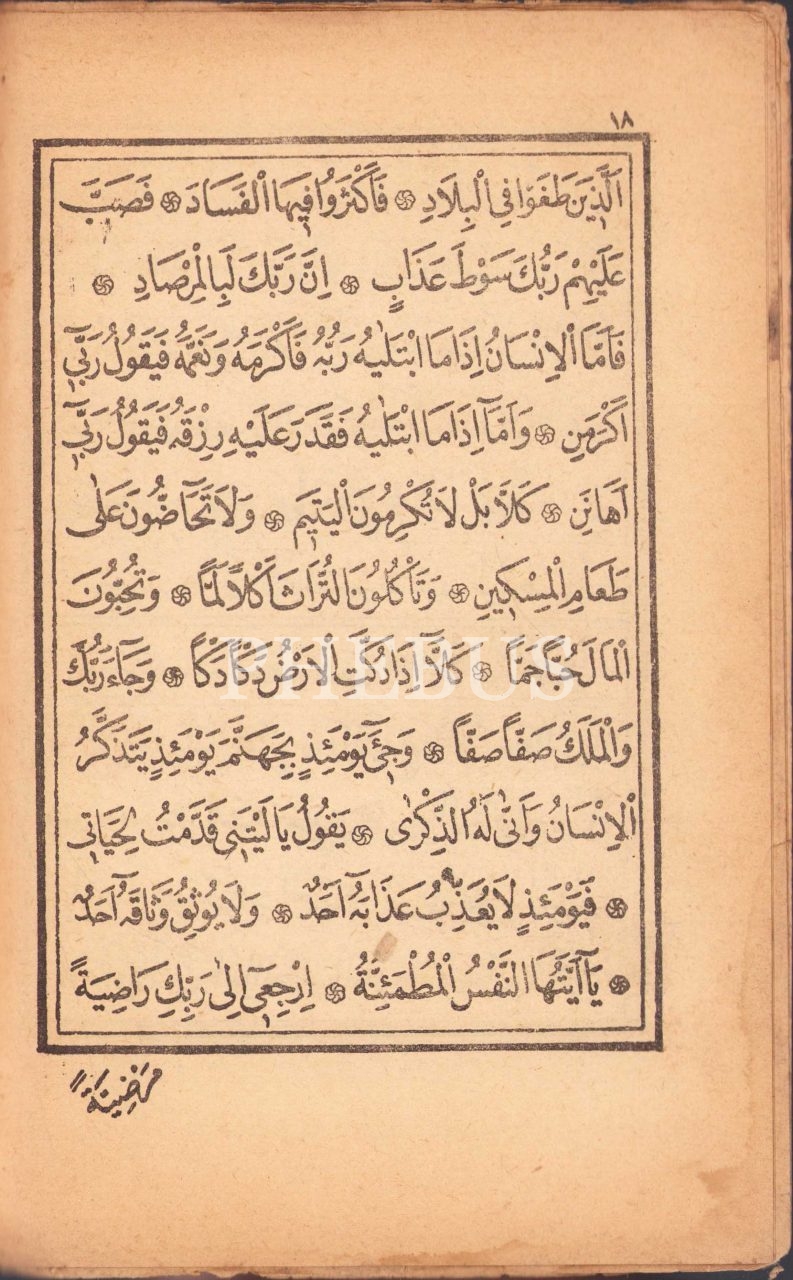 ١٨
اَلَّذِينَ طَغَوْا فِي الْبِلَادِ ۞ فَاَكْثَرُوا فِيهَا الْفَسَادَ ۞ فَصَبَّ
عَلَيْهِمْ رَبُّكَ سَوْطَ عَذَابٍ ۞ اِنَّ رَبَّكَ لَبِالْمِرْصَادِ ۞
فَاَمَّا الْاِنْسَانُ اِذَا مَا ابْتَلٰيهُ رَبُّهُ فَاَكْرَمَهُ وَنَعَّمَهُ فَيَقُولُ رَبِّٓي
اَكْرَمَنِ ۞ وَاَمَّآ اِذَا مَا ابْتَلٰيهُ فَقَدَرَ عَلَيْهِ رِزْقَهُ فَيَقُولُ رَبِّٓي
اَهَانَنِ ۞ كَلَّا بَلْ لَا تُكْرِمُونَ الْيَتِيمَ ۞ وَلَا تَحَآضُّونَ عَلٰى
طَعَامِ الْمِسْكِينِ ۞ وَتَاْكُلُونَ التُّرَاثَ اَكْلًا لَمًّا ۞ وَتُحِبُّونَ
الْمَالَ حُبًّا جَمًّا ۞ كَلَّآ اِذَا دُكَّتِ الْاَرْضُ دَكًّا دَكًّا ۞ وَجَآءَ رَبُّكَ
وَالْمَلَكُ صَفًّا صَفًّا ۞ وَجِيٓءَ يَوْمَئِذٍ بِجَهَنَّمَ يَوْمَئِذٍ يَتَذَكَّرُ
الْاِنْسَانُ وَاَنّٰى لَهُ الذِّكْرٰى ۞ يَقُولُ يَا لَيْتَنِي قَدَّمْتُ لِحَيَاتِي
۞ فَيَوْمَئِذٍ لَا يُعَذِّبُ عَذَابَهُٓ اَحَدٌ ۞ وَلَا يُوثِقُ وَثَاقَهُٓ اَحَدٌ
۞ يَآ اَيَّتُهَا النَّفْسُ الْمُطْمَئِنَّةُ ۞ اِرْجِعِٓي اِلٰى رَبِّكِ رَاضِيَةً
مَرْضِيَّةً
PHEBUS